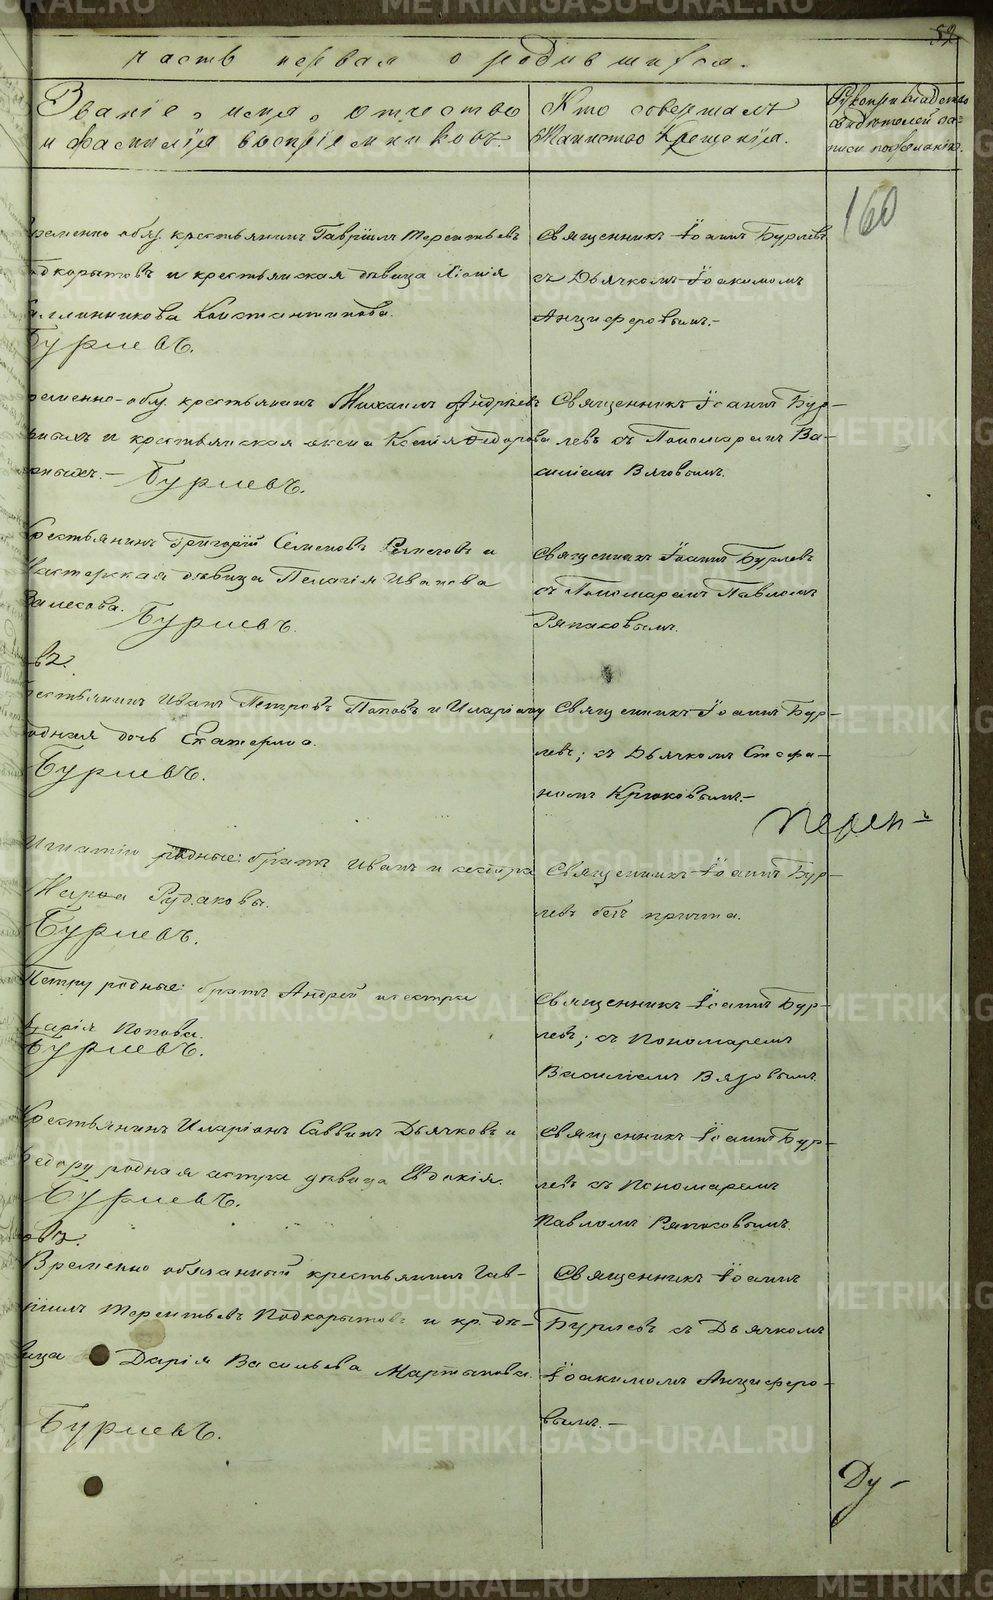 часть первая о родившихся.
Званіе, имя, отчество
и фамилія воспріемниковъ.
Кто совершалъ
Таинство Крещенія.
Рукоприкладство
свидѣтелей за-
писи по желанію.
160
временно обяз. крестьянинъ Гавріилъ Терентьевъ
Подкорытовъ и крестьянская дѣвица
Константинова.
Бурлевъ.
Священникъ Іоаннъ Бурлевъ
съ Дьячкомъ Іоакимомъ
Анциферовымъ.-
временно-обяз. крестьянинъ Михаилъ Андреевъ
и крестьянская жена Ксенія Федорова
Бурлевъ.
Священникъ Іоаннъ Бур-
левъ съ Пономаремъ Ва-
силіемъ Вяговымъ.
Крестьянинъ Григорій Семеновъ и
Мастерская дѣвица Пелагія Иванова
Залесова.
Бурлевъ.
Священникъ Іоаннъ Бурлевъ
съ Пономаремъ Павломъ
Ряпасовымъ.
въ.
Крестьянинъ Иванъ Петровъ Поповъ и Иларіону
родная дочь Екатерина.
Бурлевъ.
Священникъ Іоаннъ Бур-
левъ; съ Дьячкомъ Стефа-
номъ Крюковымъ.-
Игнатію родные: братъ Иванъ и сестра
Марѳа Рудаковы.
Бурлевъ.
Священникъ Іоаннъ Бур-
левъ безъ причта.
Петру родные: братъ Андрей и сестра
Дарія Попова.
Бурлевъ.
Священникъ Іоаннъ Бур-
левъ; съ Пономаремъ
Василіемъ Вязовымъ.
Крестьянинъ Иларіонъ Саввинъ Дьячковъ и
Федору родная сестра дѣвица Евдокія.
Бурлевъ.
Священникъ Іоаннъ Бур-
левъ съ Пономаремъ
Павломъ Ряпасовымъ.
Временно обязанный крестьянинъ Гав-
ріилъ Терентьевъ Подкорытовъ и кр. дѣ-
вица Дарія Васильева Мартынова.
Бурлевъ.
Священникъ Іоаннъ
Бурлевъ съ Дьячкомъ
Іоакимомъ Анциферо-
вымъ.-
Ду-
METRIKI.GASO-URAL.RU